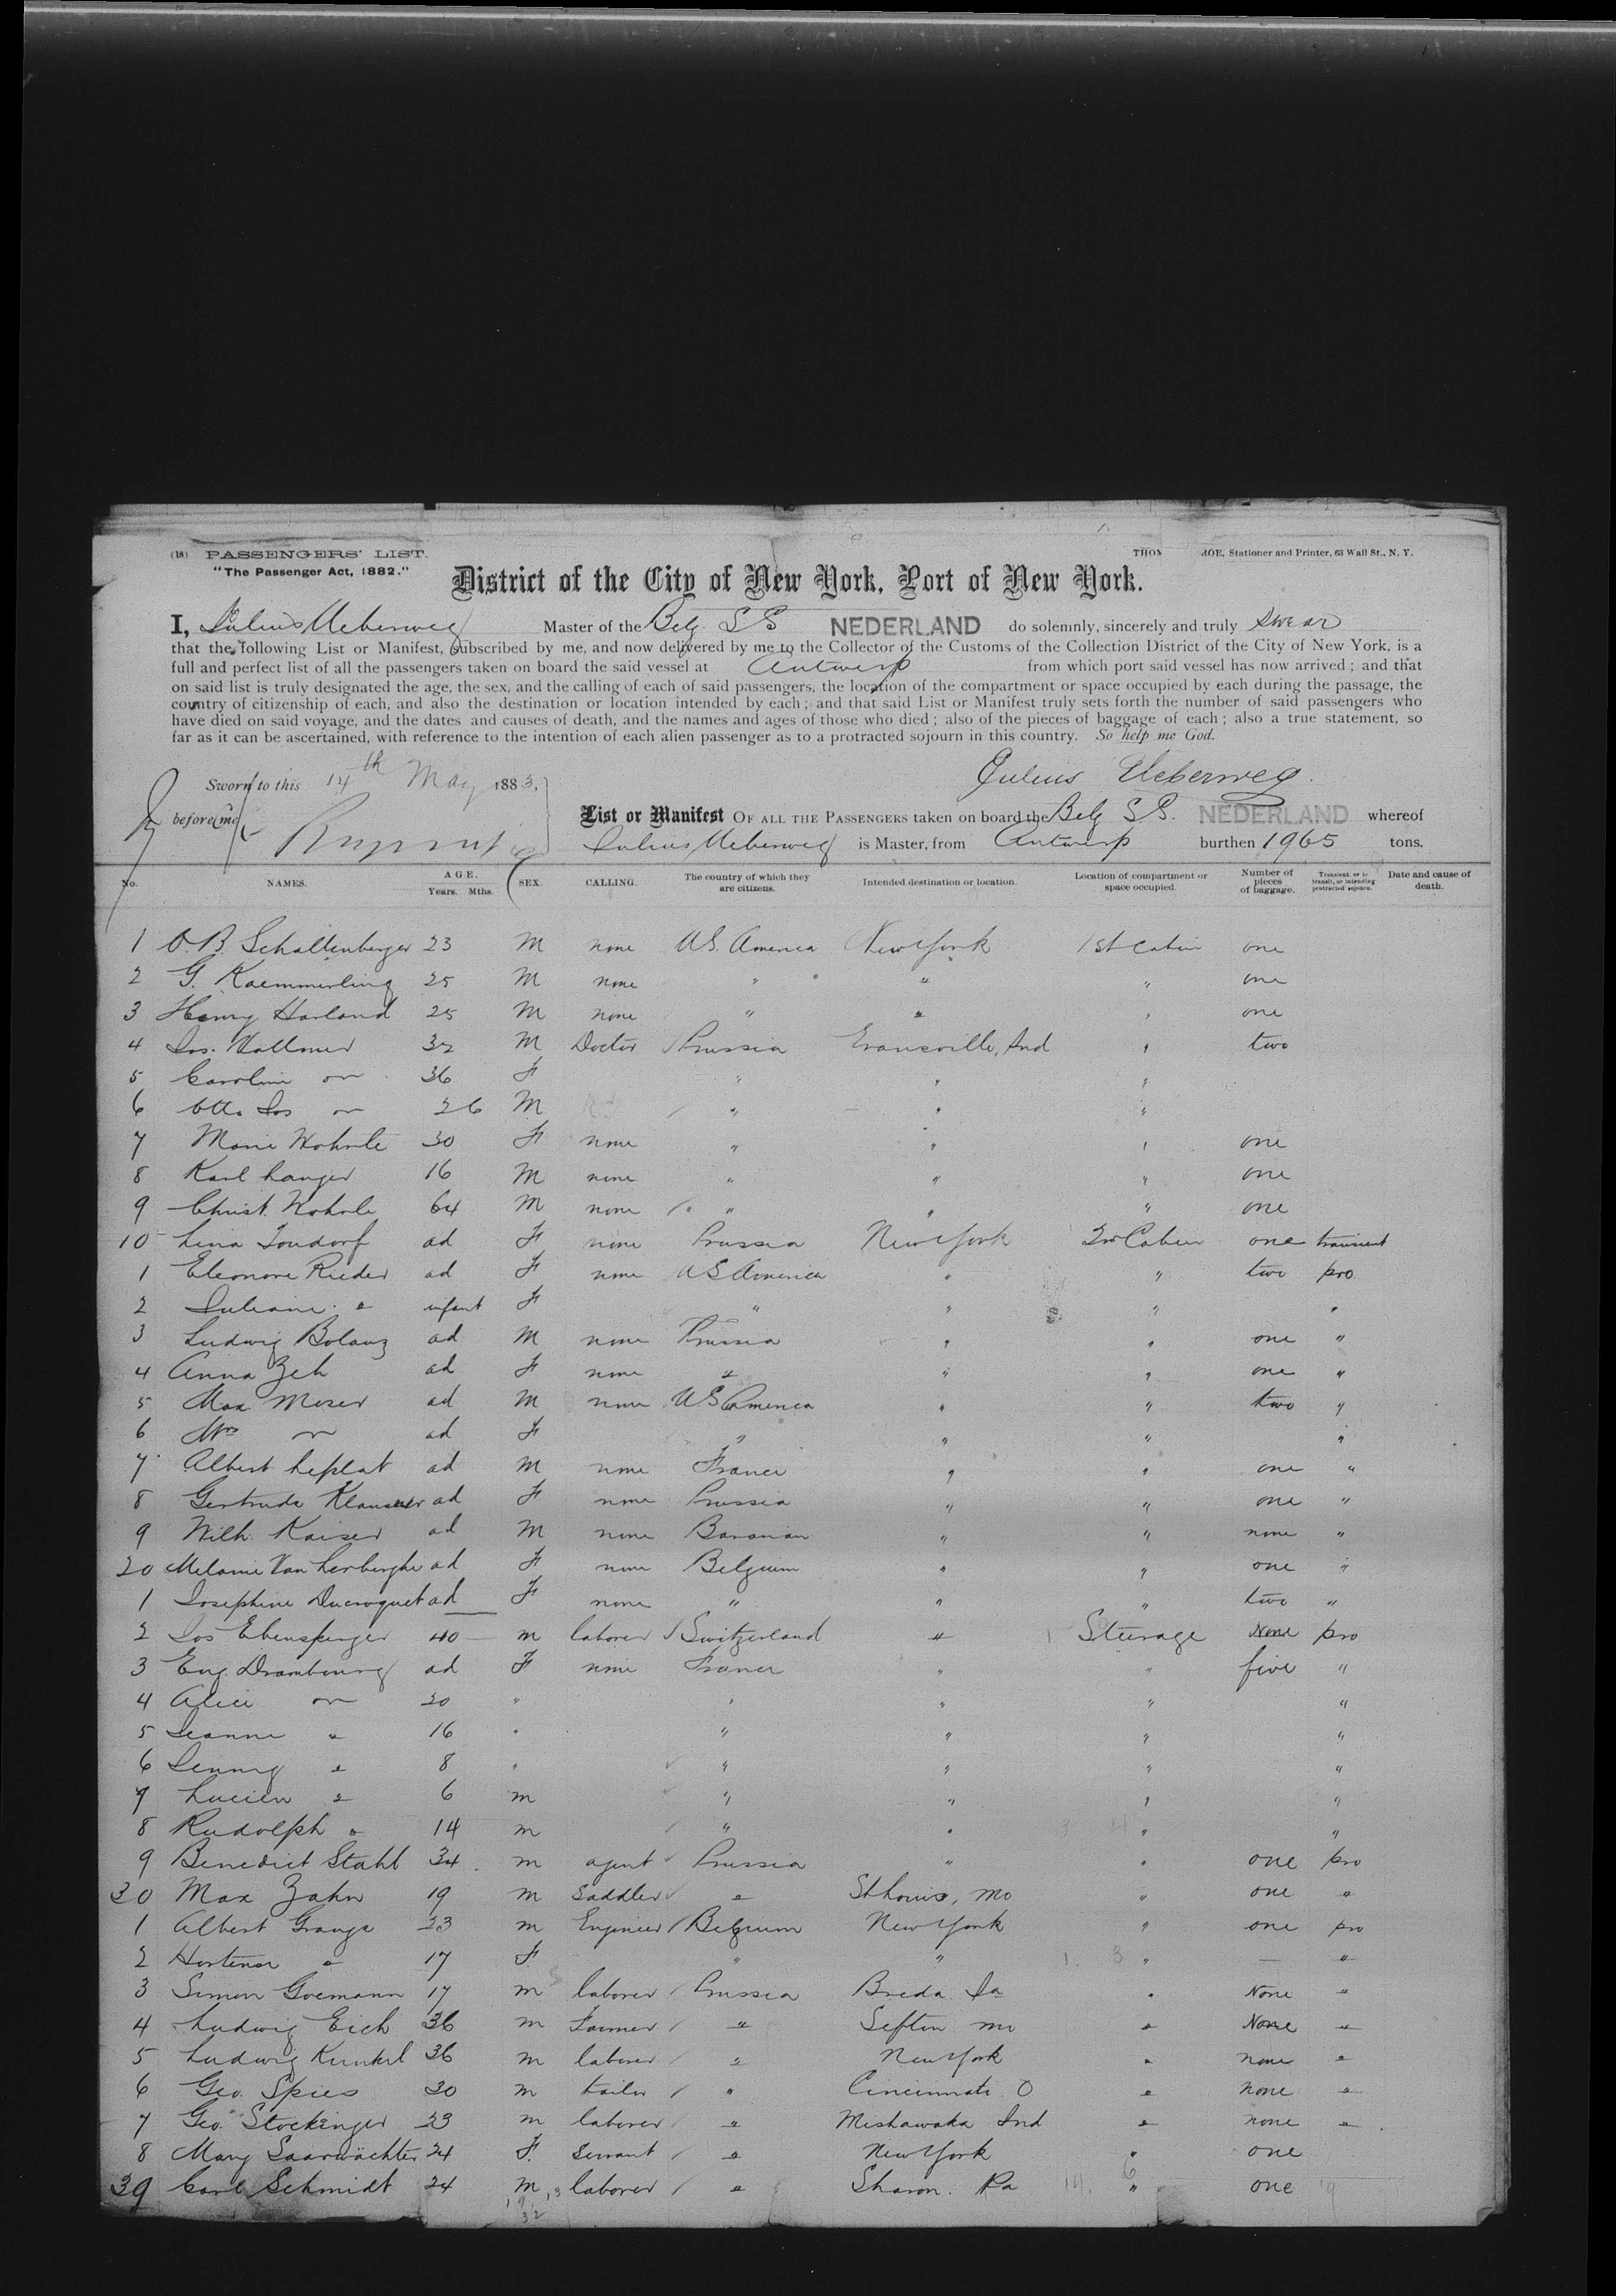 (18) PASSENGERS' LIST.
"The Passenger Act, 1882."
THOM ROE, Stationer and Printer, 63 Wall St., N. Y.
District of the City of New York, Port of New York.
I, Julius Ueberweg Master of the Belg SS NEDERLAND do solemnly, sincerely and truly swear
that the following List or Manifest, subscribed by me, and now delivered by me to the Collector of the Customs of the Collection District of the City of New York, is a
full and perfect list of all the passengers taken on board the said vessel at Antwerp from which port said vessel has now arrived; and that
on said list is truly designated the age, the sex, and the calling of each of said passengers, the location of the compartment or space occupied by each during the passage, the
country of citizenship of each, and also the destination or location intended by each; and that said List or Manifest truly sets forth the number of said passengers who
have died on said voyage, and the dates and causes of death, and the names and ages of those who died; also of the pieces of baggage of each; also a true statement, so
far as it can be ascertained, with reference to the intention of each alien passenger as to a protracted sojourn in this country. So help me God.
Sworn to this 14th May 1883,
Julius Ueberweg.
before me
List or Manifest OF ALL THE PASSENGERS taken on board the Belg S.S. NEDERLAND whereof
Julius Ueberweg is Master, from Antwerp burthen 1965 tons.
No. NAMES. AGE. Years. Mths. SEX. CALLING. The country of which they are citizens. Intended destination or location. Location of compartment or space occupied. Number of pieces of baggage. Transient, or in transit, or intending protracted sojourn. Date and cause of death.
1 O. B. Schallenberger 23 M none U.S. America New York 1st Cabin one
2 G. Kaemmerling 25 M none " " " one
3 Henry Harland 25 M none " " " one
4 Jos. 32 M Doctor Prussia Evansville, Ind " two
5 Caroline " 36 F " " "
6 Otto Jos " 26 M " " "
7 Marie Wohrle 30 F none " " " one
8 Karl Langer 16 M none " " " one
9 Christ. Wohrle 64 M none " " " one
10 Lina Tondorf ad F none Prussia New York 2nd Cabin one transient
1 Eleonore Rieder ad F none US America " " two pro
2 Juliane " infant F " " " "
3 Ludwig Bolanz ad M none Prussia " " one "
4 Anna Zeh ad F none " " " one "
5 Max Moser ad M none US America " " two "
6 Mrs " ad F " " " "
7 Albert Leplat ad M none France " " one "
8 Gertrude Klausner ad F none Prussia " " one "
9 Wilh. Kaiser ad M none Bavarian " " none "
20 Melanie Van Lerberghe ad F none Belgium " " one "
1 Josephine Ducroquet ad F none " " " two "
2 Jos Ebensperger 40 m laborer Switzerland " Steerage None pro
3 Eug. Drambourg ad F none France " " five "
4 Alice " 20 " " " " "
5 Jeanne " 16 " " " " "
6 Jenny " 8 " " " " "
7 Lucien " 6 m " " " "
8 Rudolph " 14 m " " " "
9 Benedict Stahl 34 m agent Prussia " " one pro
30 Max Zahn 19 m Saddler " St Louis, Mo " one "
1 Albert Grange 23 m Engineer Belgium New York " one pro
2 Hortense " 17 F " " " — "
3 Simon Goemann 17 m laborer Prussia Breda Ia " None "
4 Ludwig Eich 36 m Farmer " mo " None "
5 Ludwig Kunkel 36 m laborer " New York " none "
6 Geo. Spies 30 m tailor " Cincinnati O " none "
7 Geo. Stockinger 23 m laborer " Mishawaka Ind " none "
8 Mary Saarwächter 24 F. Servant " New York " one
39 Carl Schmidt 24 m laborer " Sharon. Pa " one